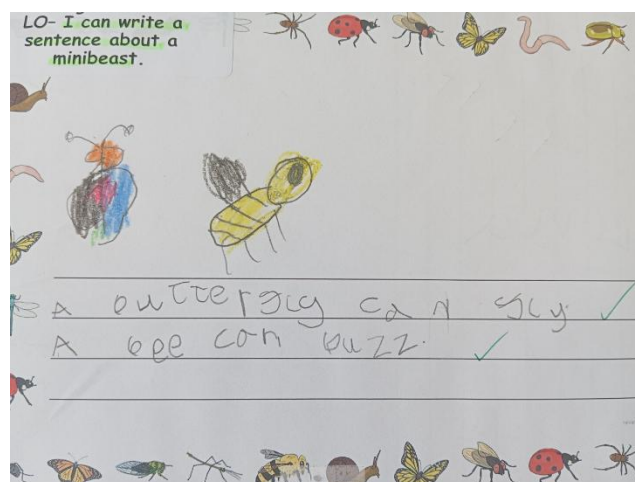 LO- I can write a
sentence about a
minibeast.
A butterfly can fly.
A bee can buzz.